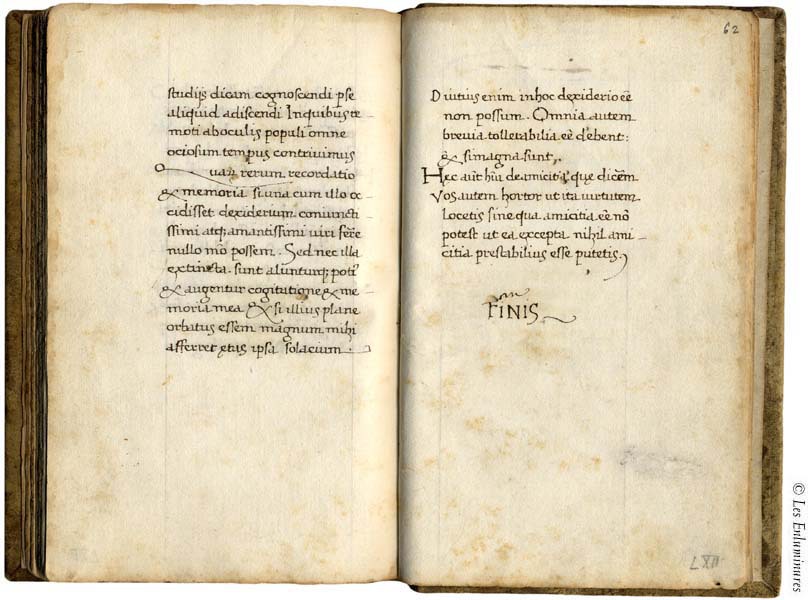 studijs dicam cognoscendi pse
aliquid adiscendi In quibus re
moti ab oculis populi omne
ociosum tempus contrivimus
rerum recordatio
& memoria si una cum illo oc
cidisset dexiderium coniuncti
ssimi atq; amantissimi viri ferre
nullo mō possem. Sed nec illa
extincta sunt alunturq; poti⁹
& augentur cogitatione & me
moria mea & si illius plane
orbatus essem magnum mihi
afferret ętas ipsa solacium
62
Diutius enim in hoc dexiderio ēe
non possum. Omnia autem
brevia tollerabilia eē debent:
& si magna sunt.
Hec aūt de amicitia quę dicēm
Vos autem hortor ut ita virtutem
locetis sine qua amicitia ēe nō
potest ut ea excepta nihil ami
citia prestabilius esse putetis
FINIS
LXII
© Les Enluminures